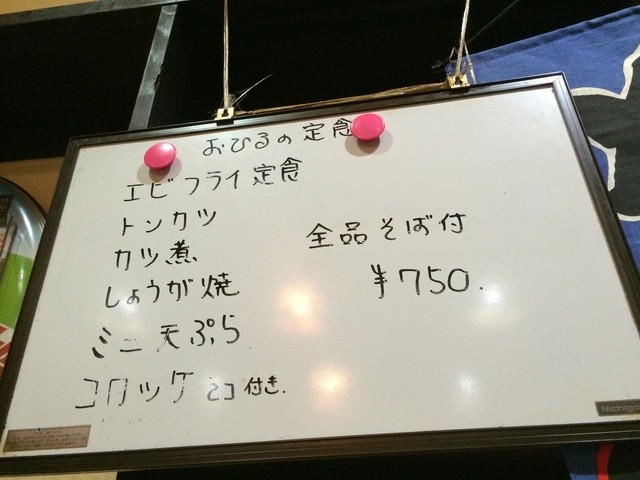 おひるの定食
エビフライ定食
トンカツ
カツ煮
しょうが焼
ミニ天ぷら
コロッケ 2コ付き.
全品そば付
¥750.
Nichigo